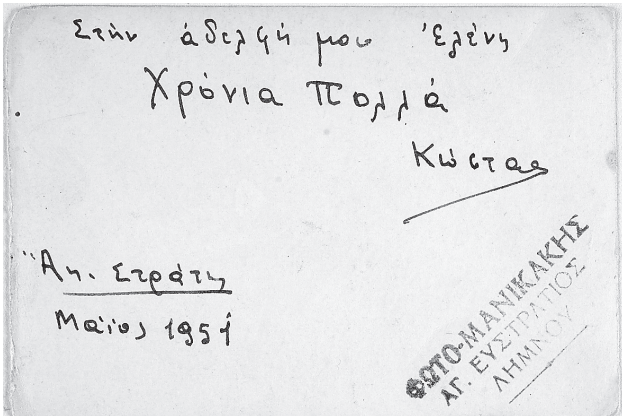 Στὴν ἀδελφή μου Ἑλένη
Χρόνια Πολλά
Κώστας
Ἄη. Στράτης
Μάϊος 1951
ΦΩΤΟ-ΜΑΝΙΚΑΚΗΣ
ΑΓ. ΕΥΣΤΡΑΤΙΟΣ
ΛΗΜΝΟΥ